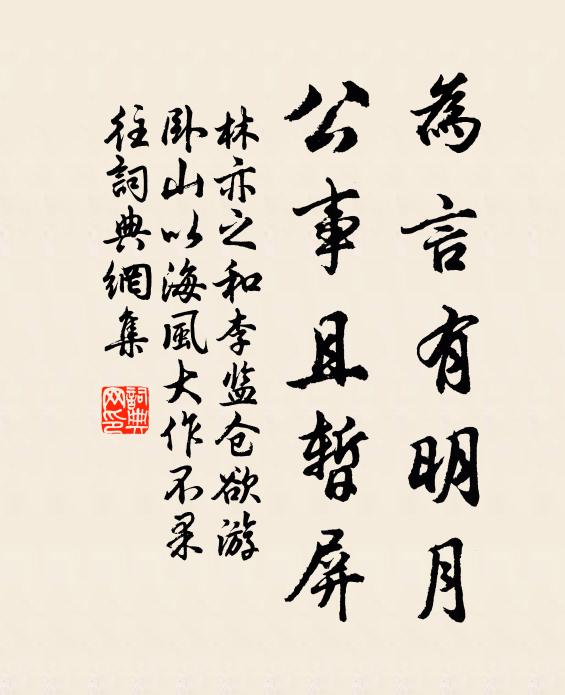 為言有明月
公事且暫屏
林亦之和李监仓欲游
卧山以海風大作不果
往詞典網集
詞典网印